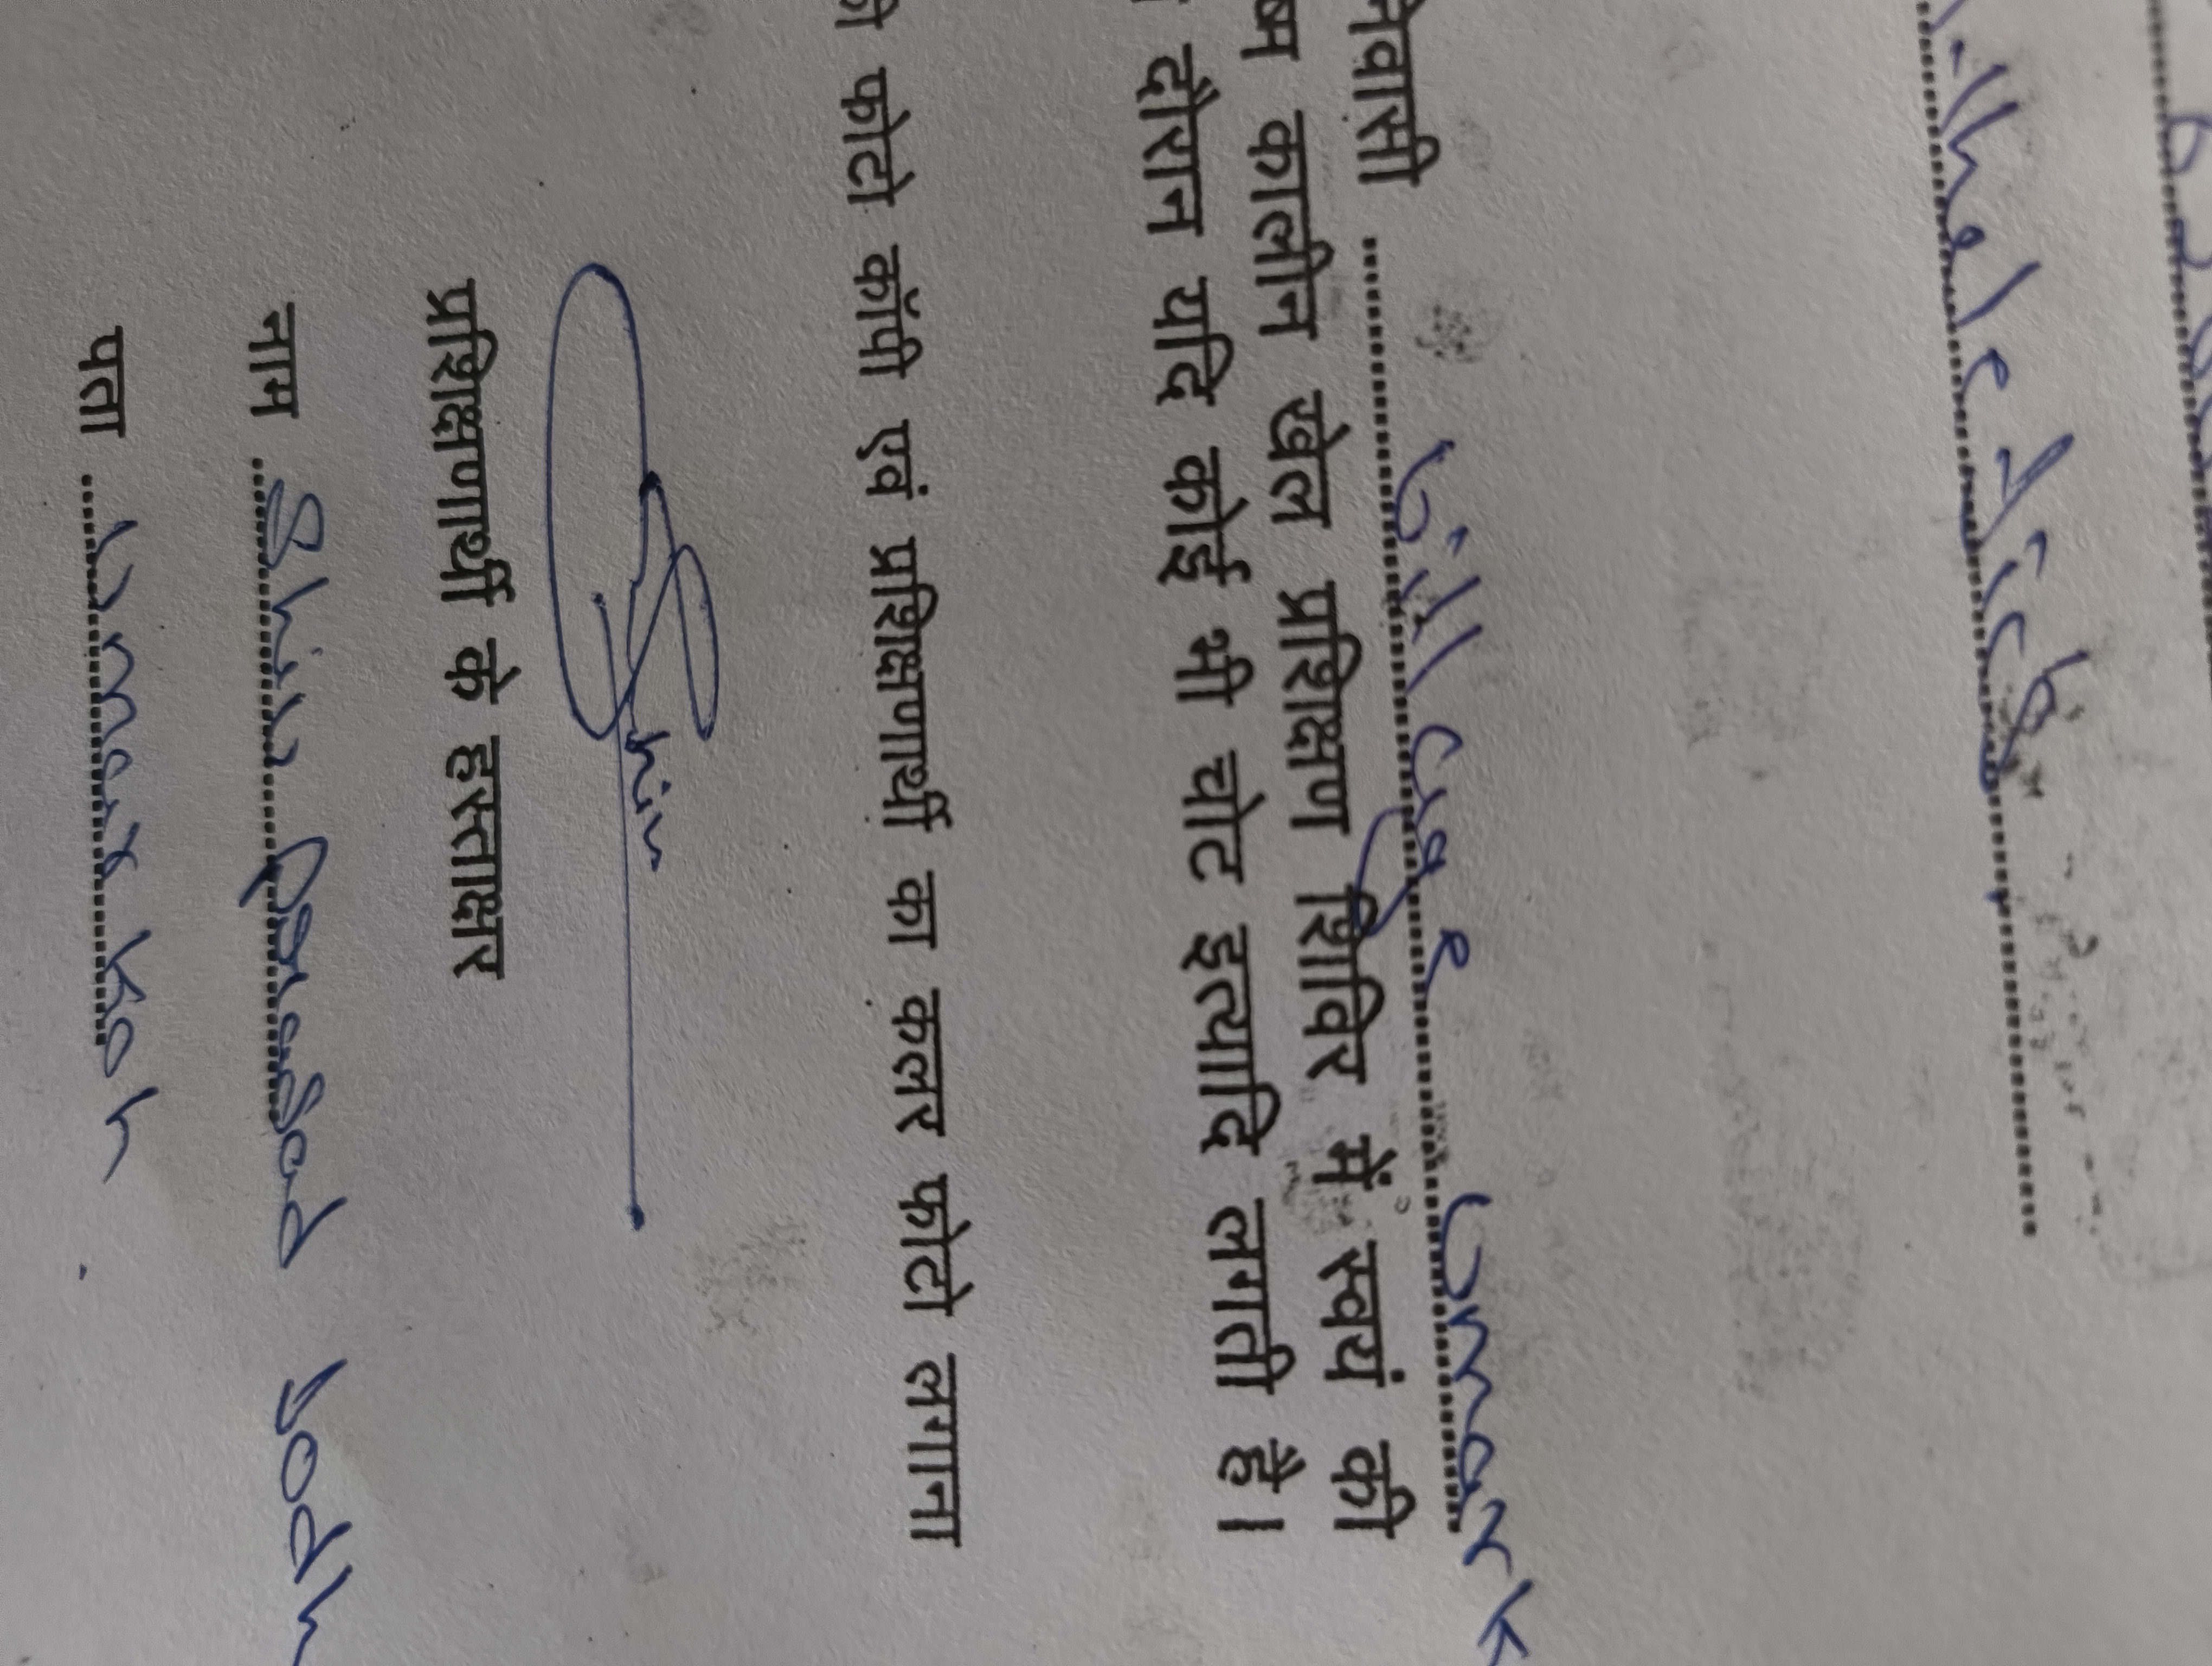 Atheletics
निवासी ........ Village Umark
कालीन खेल प्रशिक्षण शिविर में स्वयं की
दौरान यदि कोई भी चोट इत्यादि लगती है।
फोटो कॉपी एवं प्रशिक्षणार्थी का कलर फोटो लगाना
Shiv
प्रशिक्षणार्थी के हस्ताक्षर
नाम ........ Shiv Prasad
पता ........ Umarkoh